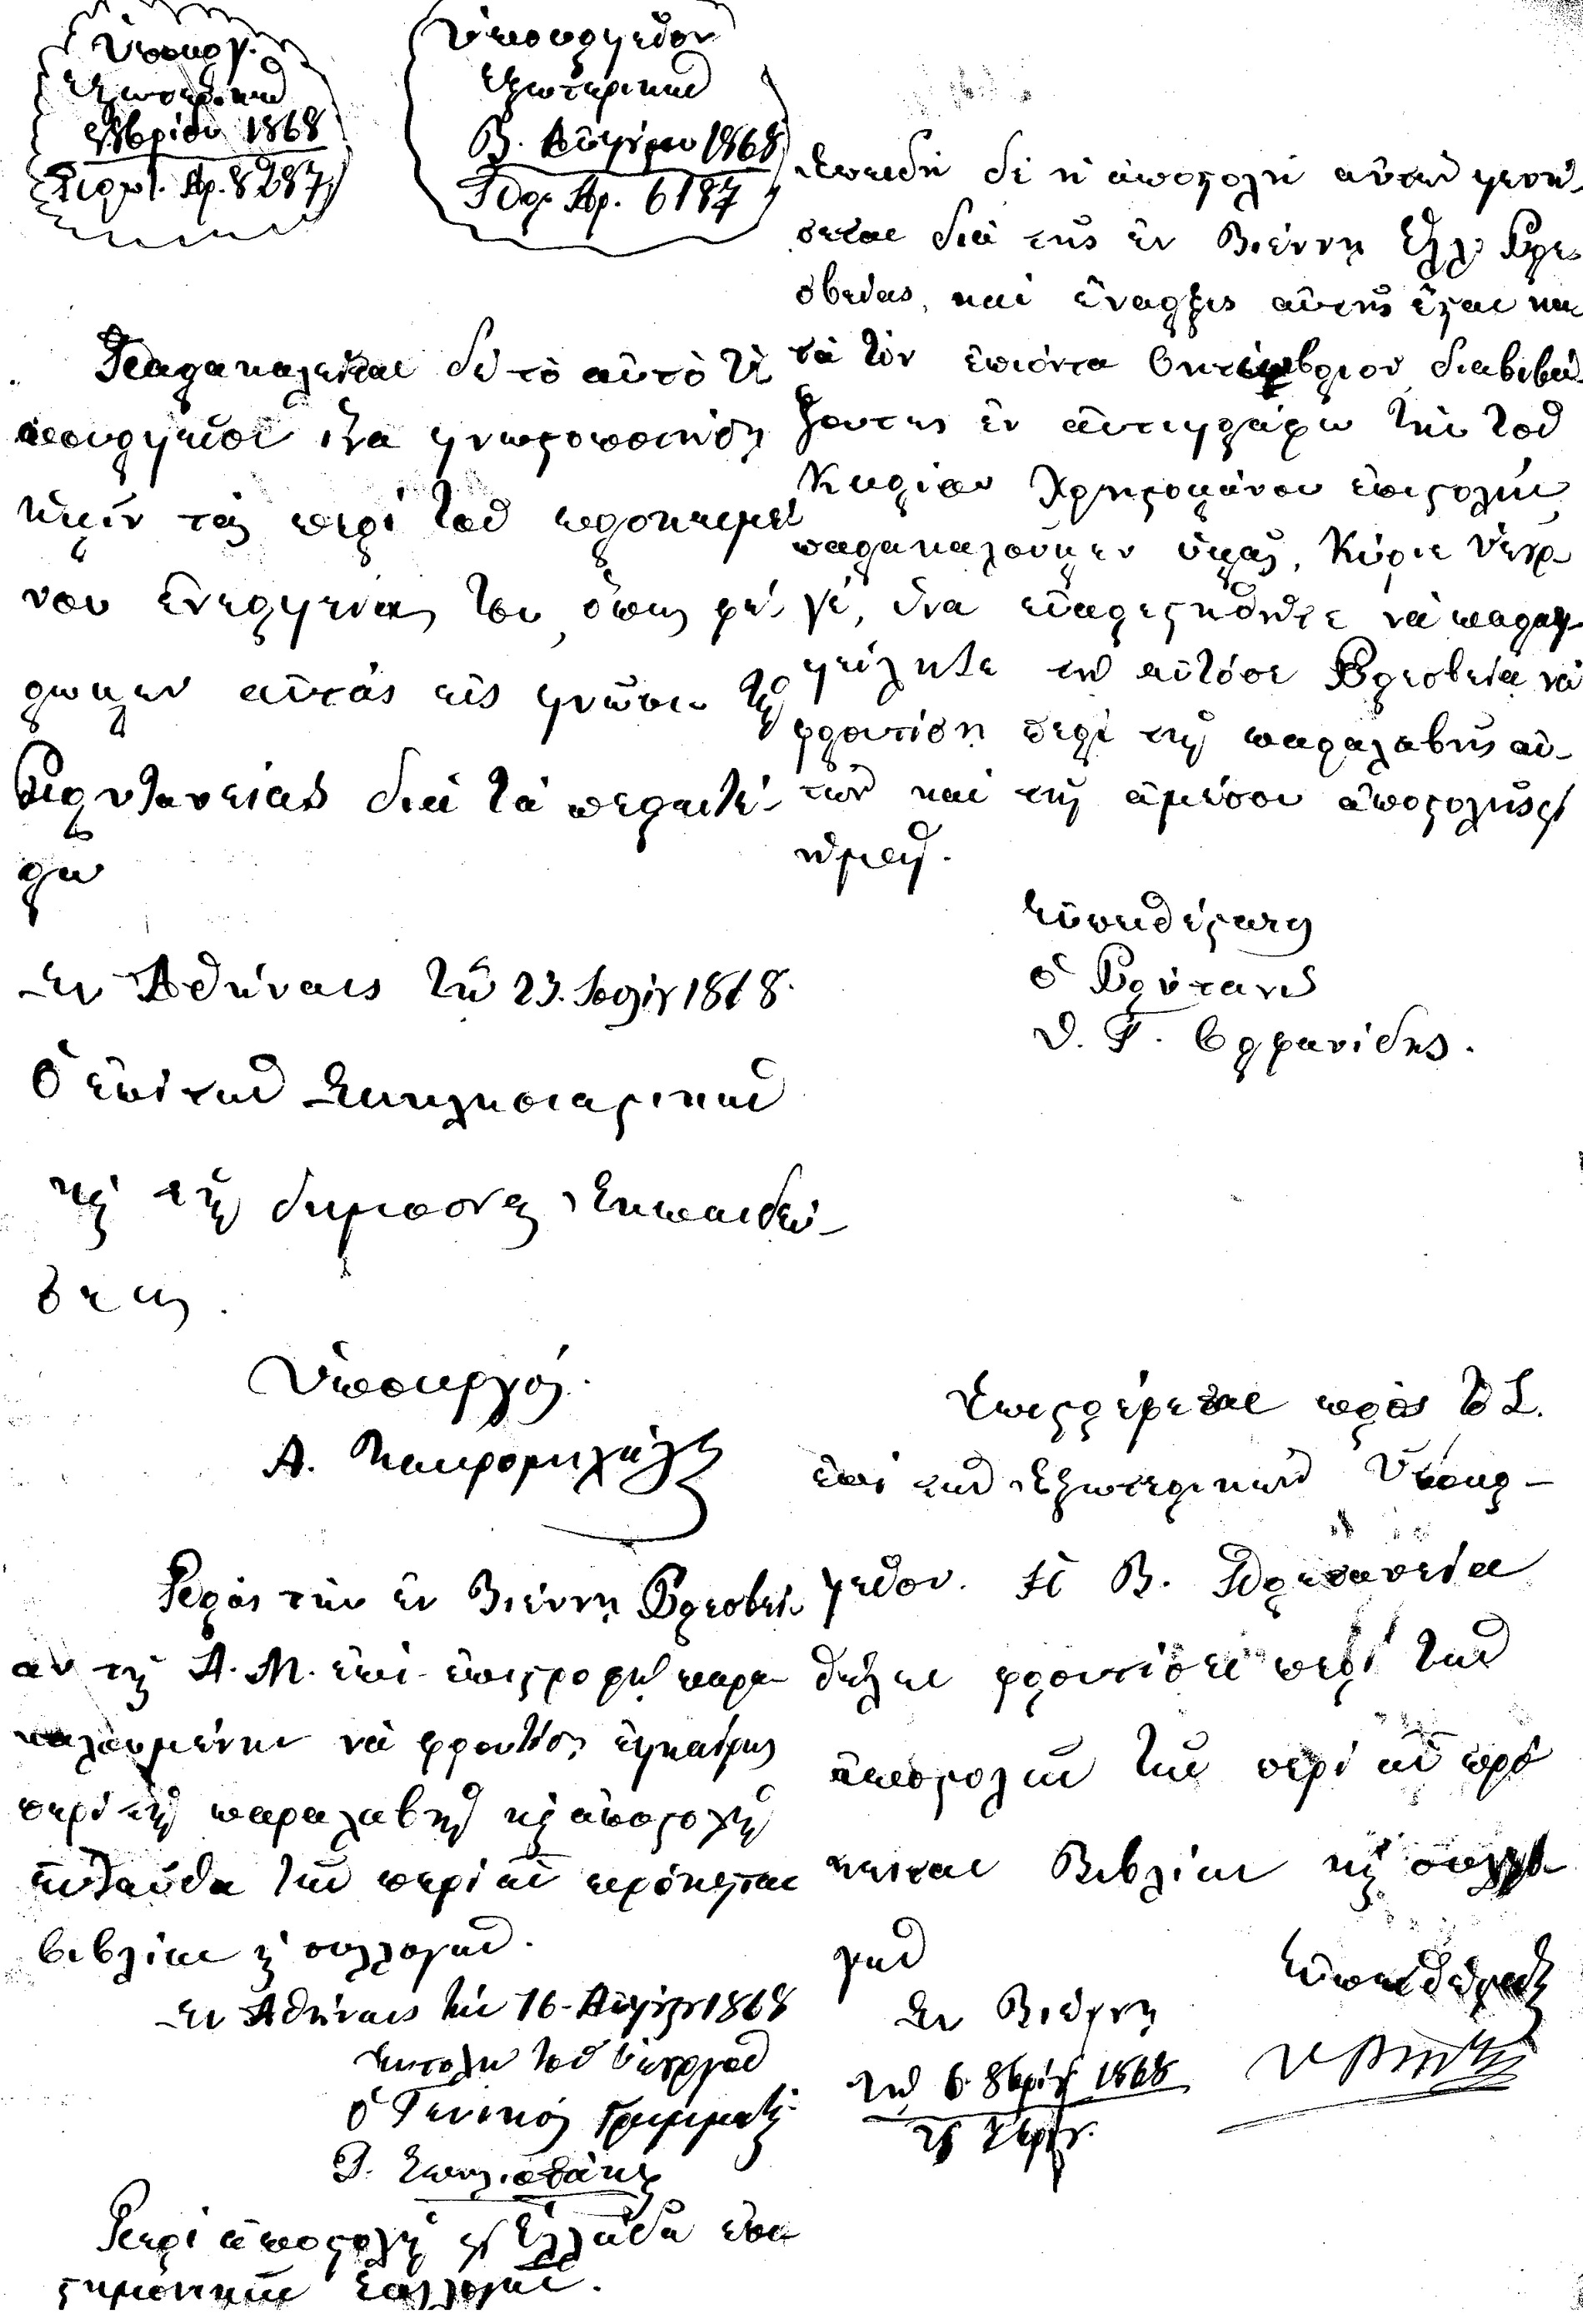 Ὑπουργ.
Ἐξωτερικῶν
8βρίου 1868
Πρωτ. Ἀρ. 8287
Ὑπουργεῖον
Ἐξωτερικῶν
3. Αὐγούστου 1868
Πρ. Ἀρ. 6187
Παρακαλεῖται δὲ τὸ αὐτὸ Ὑ
πουργεῖον ἵνα γνωστοποιήσῃ
ἡμῖν τὰς περὶ τοῦ προκειμέ
νου ἐνεργείας του, ὅπως φέ
ρωμεν αὐτὰς εἰς γνῶσιν τῆς
Πρυτανείας διὰ τὰ περαιτέ-
ρω
Ἐν Ἀθήναις τῇ 23. Ἰουλίου 1868.
Ὁ ἐπὶ τῶν Ἐκκλησιαστικῶν
κὴ τῆς δημοσίας Ἐκπαιδεύ-
σεως.
Ὑπουργός.
Α. Μαυρομιχάλης
Πρὸς τὴν ἐν Βιέννῃ Πρεσβεί
αν τῆς Α. Μ. ἐπὶ ἐπιστροφῇ παρα
καλουμένην νὰ φροντίσῃ ἐγκαίρως
περὶ τῆς παραλαβῆς κὴ ἀποστολῆς
ἐνταῦθα τῶν περὶ ὧν πρόκειται
βιβλίων κὴ συλλογῶν.
Ἐν Ἀθήναις τὴν 16 Αὐγούστου 1868
Ἐντολῇ τοῦ Ὑπουργοῦ
ὁ Γενικὸς Γραμματεὺς
Περὶ ἀποστολῆς εἰς Ἑλλάδα ἐπι
στημονικῶν συλλογῶν.
Ἐπειδὴ δὲ ἡ ἀποστολὴ αὐτῶν γενή-
σεται διὰ τῆς ἐν Βιέννῃ Ἑλλ. Πρε-
σβείας, καὶ ἔναρξις αὐτῆς ἔσται κα
τὰ τὸν ἐπιόντα Ὀκτώμβριον διαβιβά-
ζοντες ἐν ἀντιγράφῳ τὴν τοῦ
Κυρίου Χρηστομάνου ἐπιστολὴν
παρακαλοῦμεν ὑμᾶς, Κύριε Ὑπουρ
γέ, ἵνα εὐαρεστηθῆτε νὰ παραγ
γείλητε τῇ αὐτόσε Πρεσβείᾳ νὰ
φροντίσῃ περὶ τῆς παραλαβῆς αὐ-
τῶν καὶ τῆς ἀμέσου ἀποστολῆς πρὸς
ἡμᾶς.
Εὐπειθέστατος
ὁ Πρύτανις
Θ. Γ. Ὀρφανίδης.
Ἐπιστρέφεται πρὸς τὸ Σ.
ἐπὶ τῶν Ἐξωτερικῶν Ὑπουρ-
γεῖον. Ἡ Β. Πρεσβεία
θέλει φροντίσει περὶ τῆς
ἀποστολῆς τῶν περὶ ὧν πρό
κειται Βιβλίων κὴ συλλο
γῶν
Ἐν Βιέννῃ
τῇ 6. 8βρίου 1868
Εὐπειθέστατος